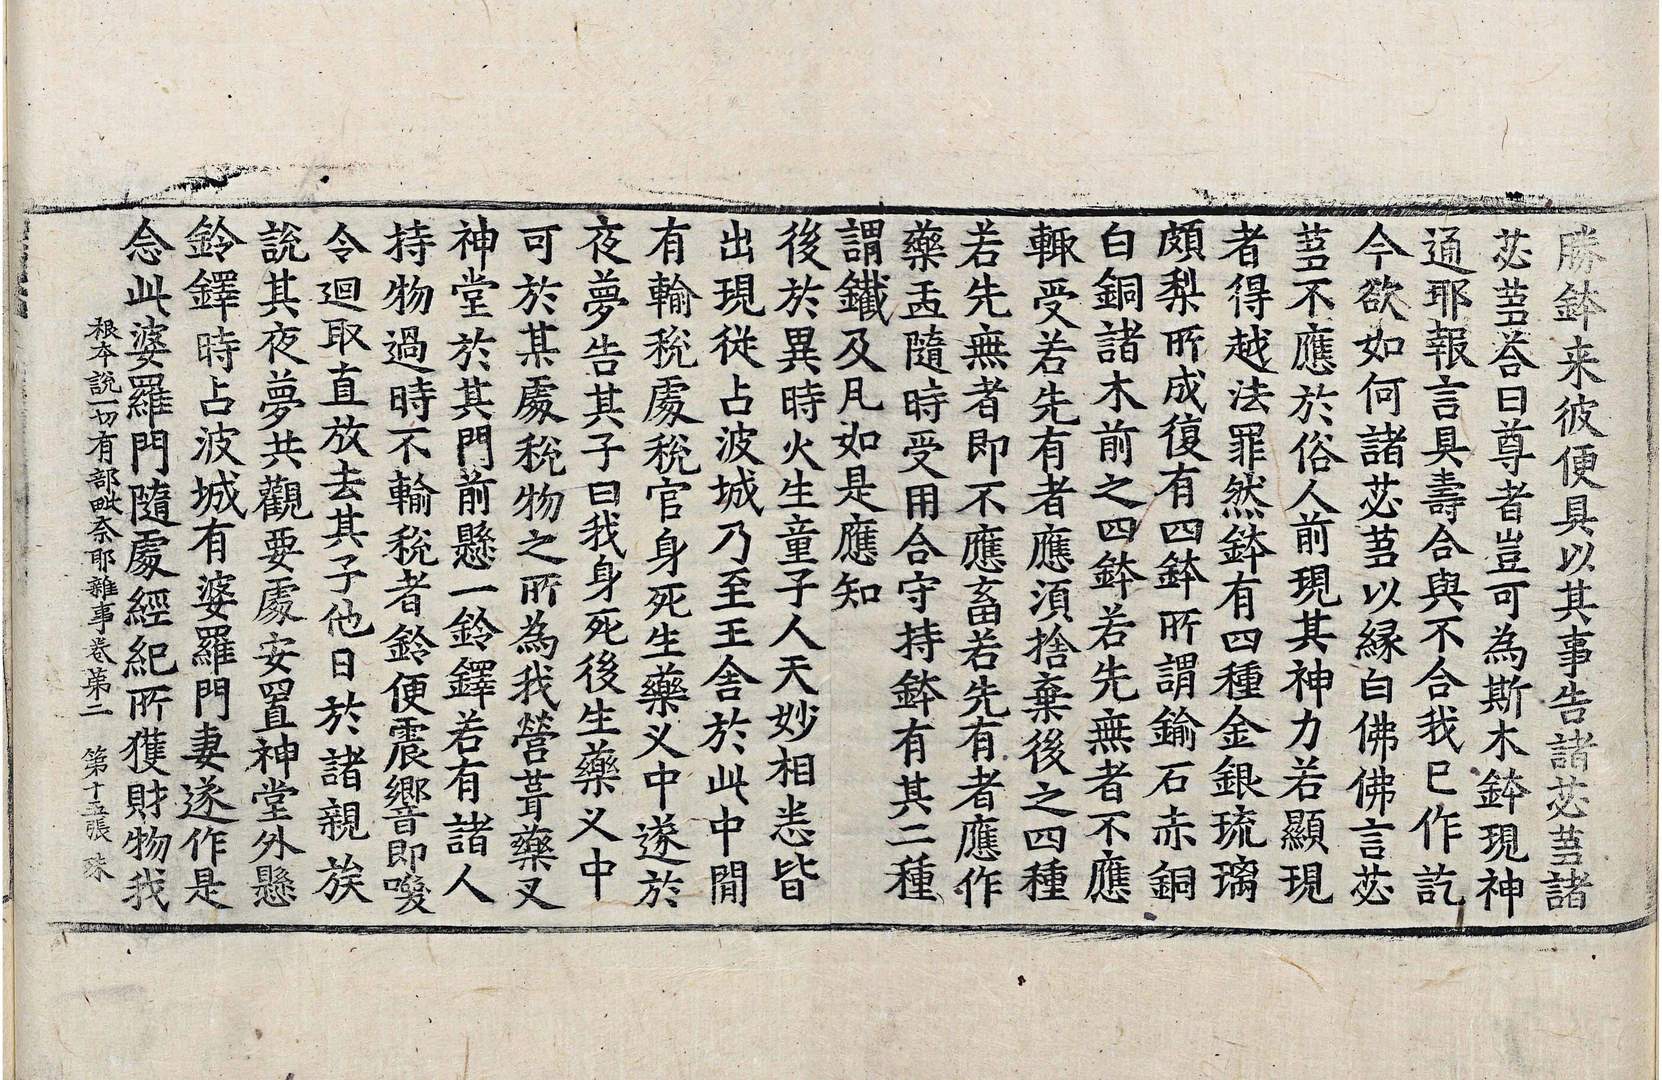 勝鉢来彼便具以其事告諸苾蒭諸
苾蒭荅曰尊者豈可為斯木鉢現神
通耶報言具壽合與不合我已作訖
今欲如何諸苾蒭以縁白佛佛言苾
蒭不應於俗人前現其神力若顯現
者得越法罪然鉢有四種金銀琉璃
頗梨所成復有四鉢所謂鍮石赤銅
白銅諸木前之四鉢若先無者不應
輙受若先有者應湏捨棄後之四種
若先無者即不應畜若先有者應作
藥盂隨時受用合守持鉢有其二種
謂鐵及凡如是應知
後於異時火生童子人天妙相悉皆
出現從占波城乃至王舍於此中閒
有輸稅處稅官身死生藥义中遂於
夜夢告其子曰我身死後生藥义中
可於某處稅物之所為我營葺藥叉
神堂於其門前懸一鈴鐸若有諸人
持物過時不輸稅者鈴便震響即喚
令迴取直放去其子他日於諸親族
說其夜夢共觀要處安置神堂外懸
鈴鐸時占波城有婆羅門妻遂作是
念此婆羅門隨處經紀所獲財物我
根本說一切有部毗奈耶雜事卷第二　第十五張　珠